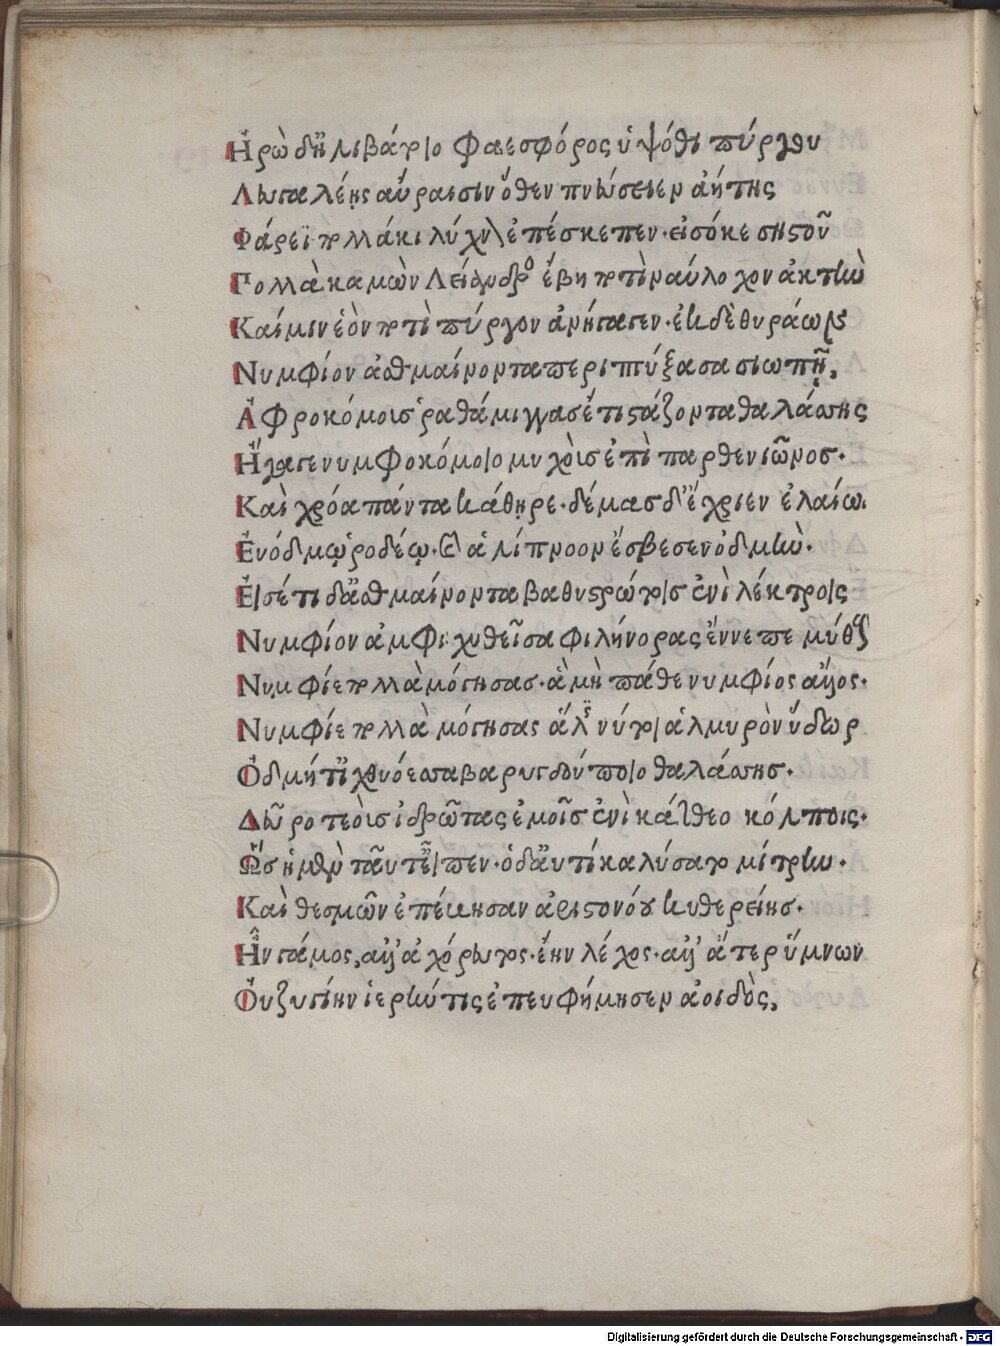 Ἡρὼ δ' ἠλιβάτοιο φαεσφόρος ὑψόθι πύργου
Λευγαλέῃς αὔραισιν ὅθεν πνεύσειεν ἀήτης
Φάρεϊ πολλάκι λύχνον ἐπέσκεπεν· εἰσόκε σηστοῦ
Πολλὰ καμὼν Λείανδρος ἔβη ποτὶ ναύλοχον ἀκτὴν
Καί μιν ἑὸν ποτὶ πύργον ἀνήγαγεν· ἐκ δὲ θυράων
Νυμφίον ἀσθμαίνοντα περιπτύξασα σιωπῇ,
Ἀφροκόμοισ ῥαθάμιγγασ ἔτι στάζοντα θαλάσσης
Ἤγαγε νυμφοκόμοιο μυχοῖς ἐπὶ παρθενεῶνοσ·
Καὶ χρόα πάντα κάθηρε· δέμας δ' ἔχριεν ἐλαίω
Ἐυόδμῳ ῥοδέῳ· καὶ ἁλίπνοον ἔσβεσεν ὀδμὴν·
Εἰσέτι δ' ἀσθμαίνοντα βαθυστρώτοις ἐνὶ λέκτροις
Νυμφίον ἀμφιχυθεῖσα φιλήνορας ἔννεπε μύθους
Νυμφίε πολλὰ μόγησας· ἃ μὴ πάθε νυμφίος ἄλλος·
Νυμφίε πολλὰ μόγησας ἅλις νύ τοι ἁλμυρὸν ὕδωρ
Ὀδμή τ' ἰχθυόεσσα βαρυγδούποιο θαλάσσησ·
Δεῦρο τεοὺσ ἱδρῶτας ἐμοῖσ ἐνὶ κάτθεο κόλποις·
Ὣσ ἡ μὲν ταῦτ' εἶπεν· ὁ δ' αὐτίκα λύσατο μίτρην·
Καὶ θεσμῶν ἐπέβησαν ἀριστονόου κυθερείησ·
Ἦν γάμος, ἀλλ' ἀχόρευτος· ἔην λέχος· ἀλλ' ἄτερ ὕμνων
Οὐ ζυγίην ἱερήν τις ἐπευφήμησεν ἀοιδὸς,
Digitalisierung gefördert durch die Deutsche Forschungsgemeinschaft - DFG